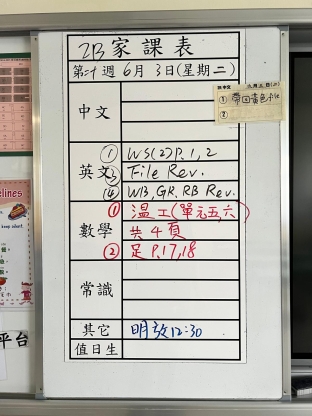 2B家課表
第廿週 6月 3日(星期二)
中文
① 帶回黃色file
②
英文
① WS(2)P.1,2
③ File Rev.
④ WB, GR, RB Rev.
數學
① 溫工(單元五,六)
共4頁
② 足 P.17,18
常識
其它 明放12:30
值日生
elines
keep silent.
平台